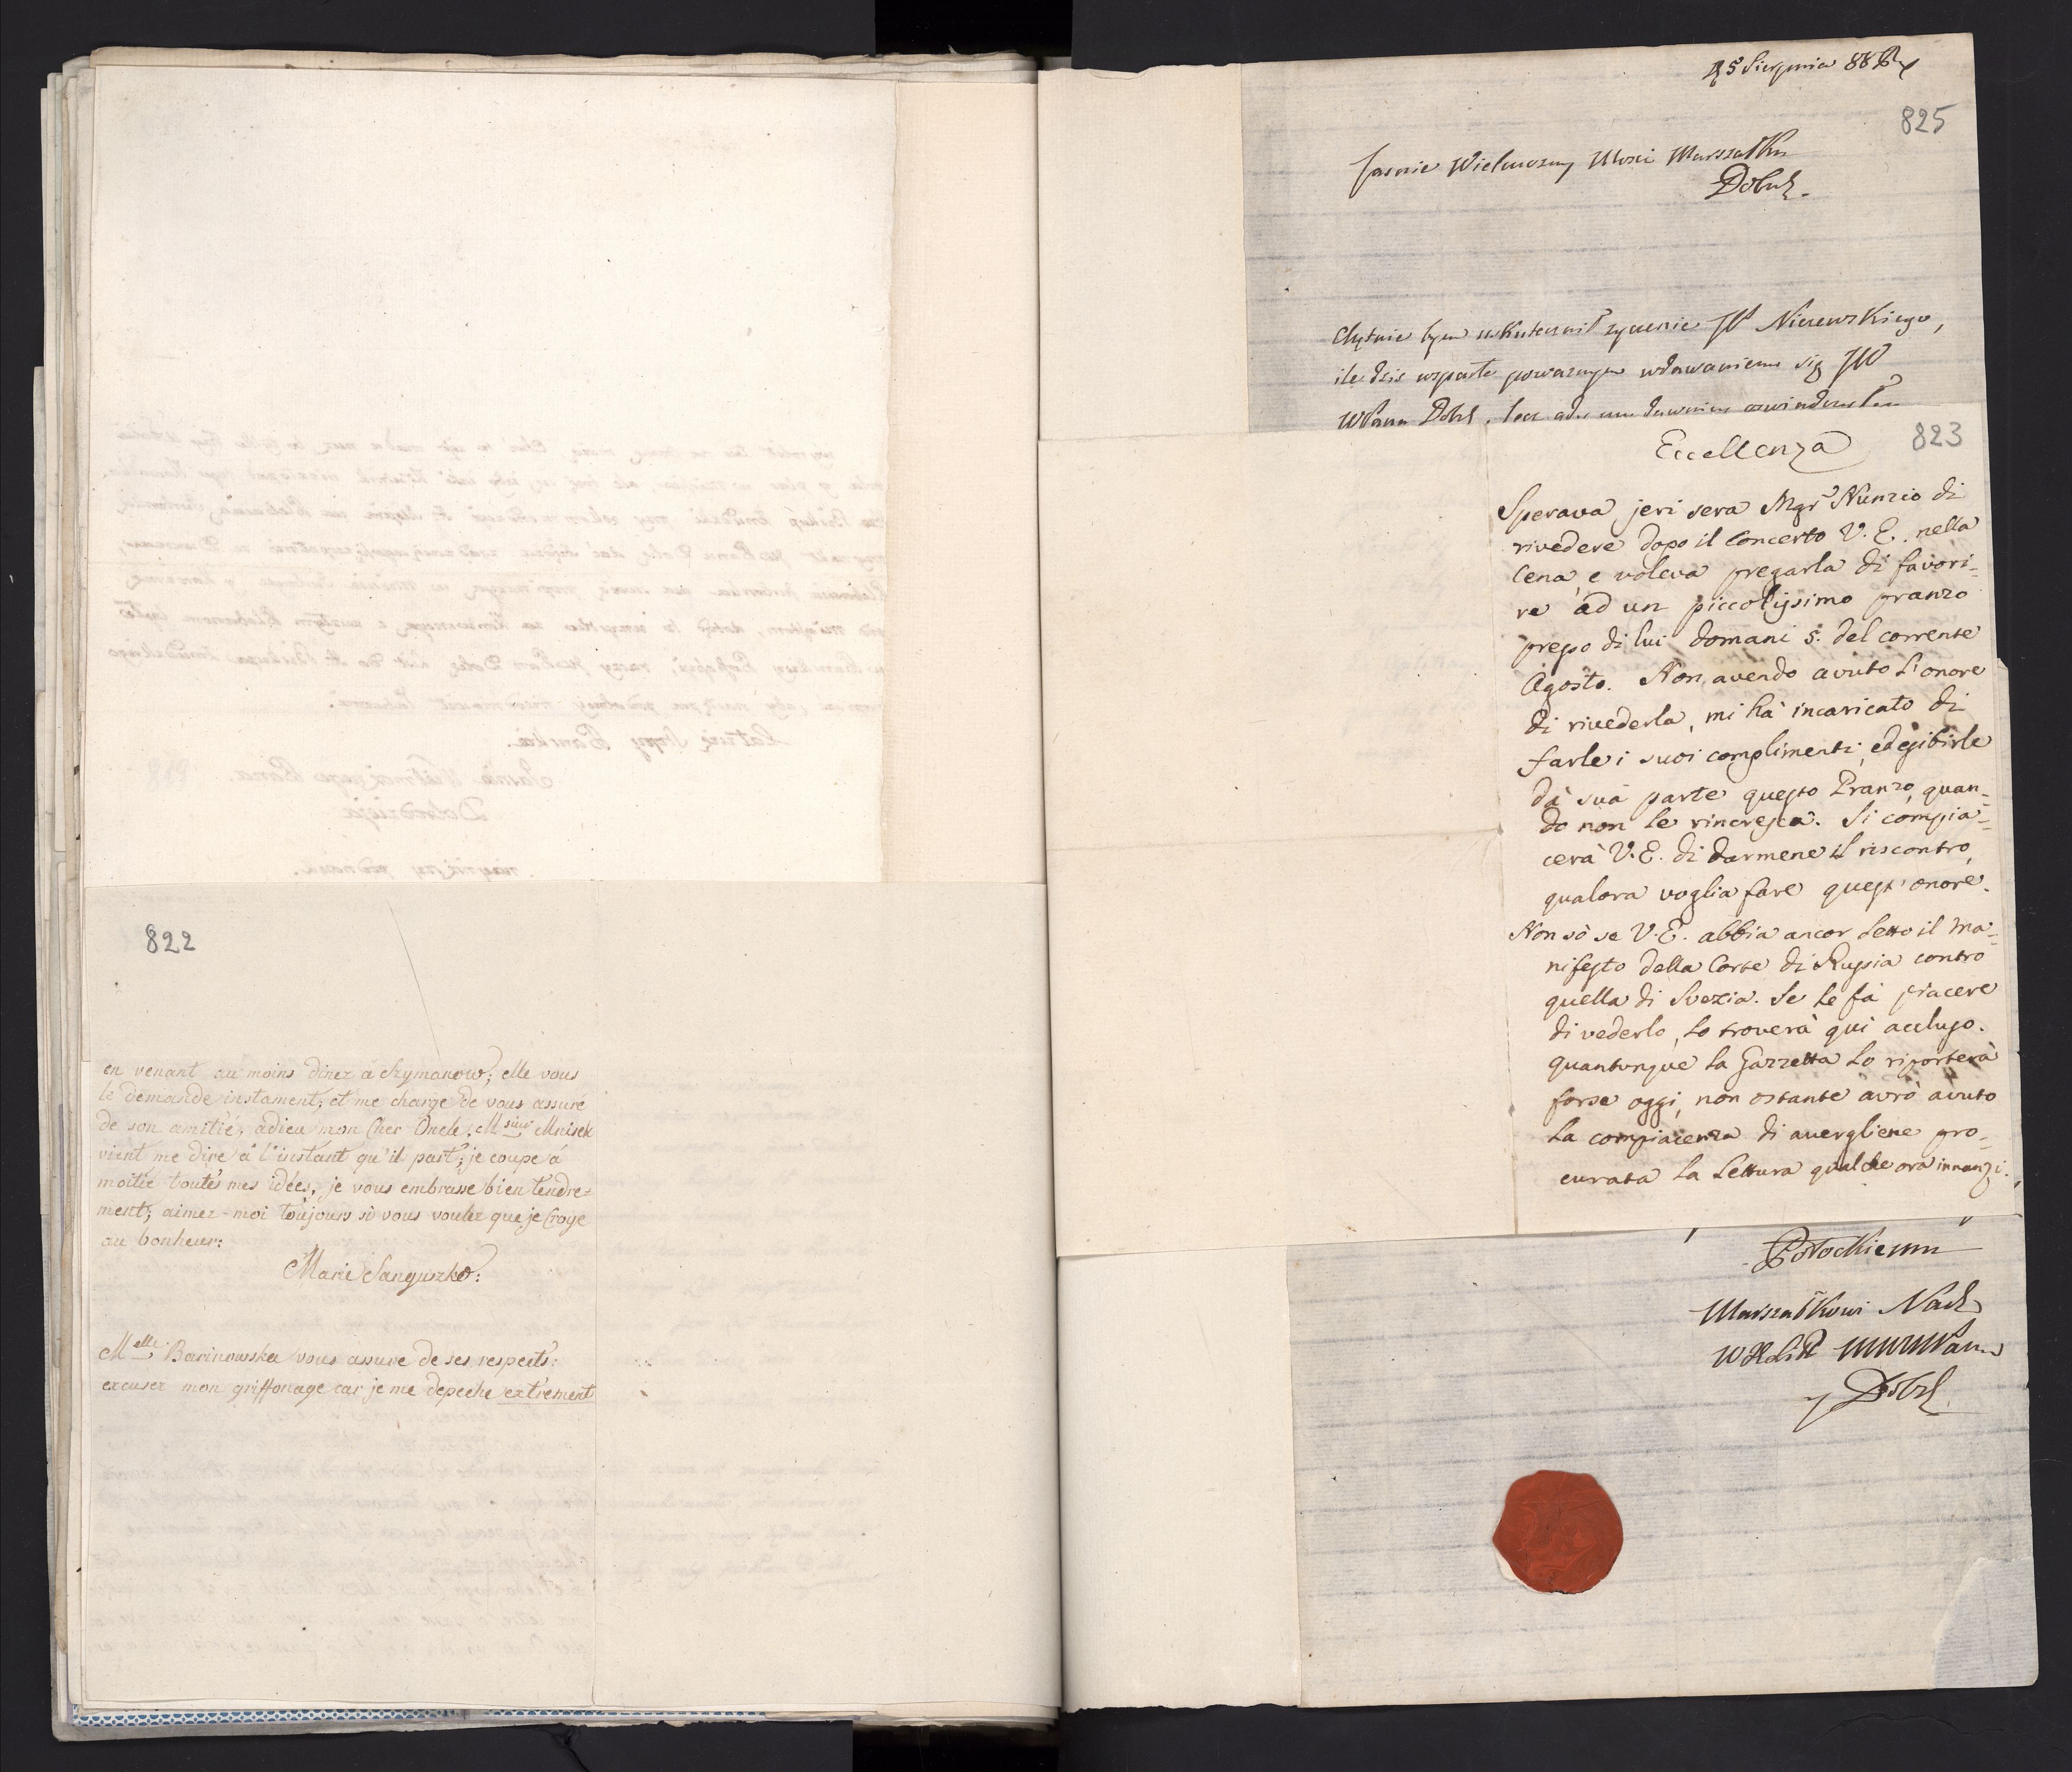 822
en venant au moins dinez à Szymanow; elle vous
le demande instament, et me charge de vous assuré
de son amitié; adieu mon Cher Oncle, M sieur Mnisek
vient me dire à l'instant qu'il part; je coupe à
moitié toutes mes idées, je vous embrasse bien tendre=
ment; aimez-moi toujours si vous voulez que je Croye
au bonheur:
Marie Sanguszko:
Melle Barinowska vous assure de ses respects:
excusez mon griffonage car je me depeche extrement
Sierpnia
825
Jasnie Wielmozny Mosci Marszałku
Dobrl.
Chętnie bym uskutecznił zyczenie JP Niezewskiego,
ile dzis wsparte powaznym wdawaniem się JW
WPana Dobrl.
823
Eccellenza
Sperava jeri sera Mgr Nunzio di
rivedere dopo il Concerto V. E. nella
Cena, e voleva pregarla di favori=
re ad un piccolissimo pranzo
presso di lui domani 5. del corrente
Agosto. Non avendo avuto l'onore
di rivederla, mi hà incaricato di
farle i suoi complimenti, ed esibirle
dà sua parte questo Pranzo, quan=
do non le rincresca. Si compia=
cerà V. E. di darmene il riscontro,
qualora voglia fare quest'onore.
Non sò se V. E. abbia ancor letto il Ma=
nifesto della Corte di Russia contro
quella di Svezia. Se le fà piacere
di vederlo, lo troverà qui accluso.
quantunque la Gazzetta lo riporterà
forse oggi, non ostante avrò avuto
la compiacenza di avergliene pro=
curata la Lettura qualche ora innanzi.
Potockiemu
Marszałkowi Nad
y Dobrl.